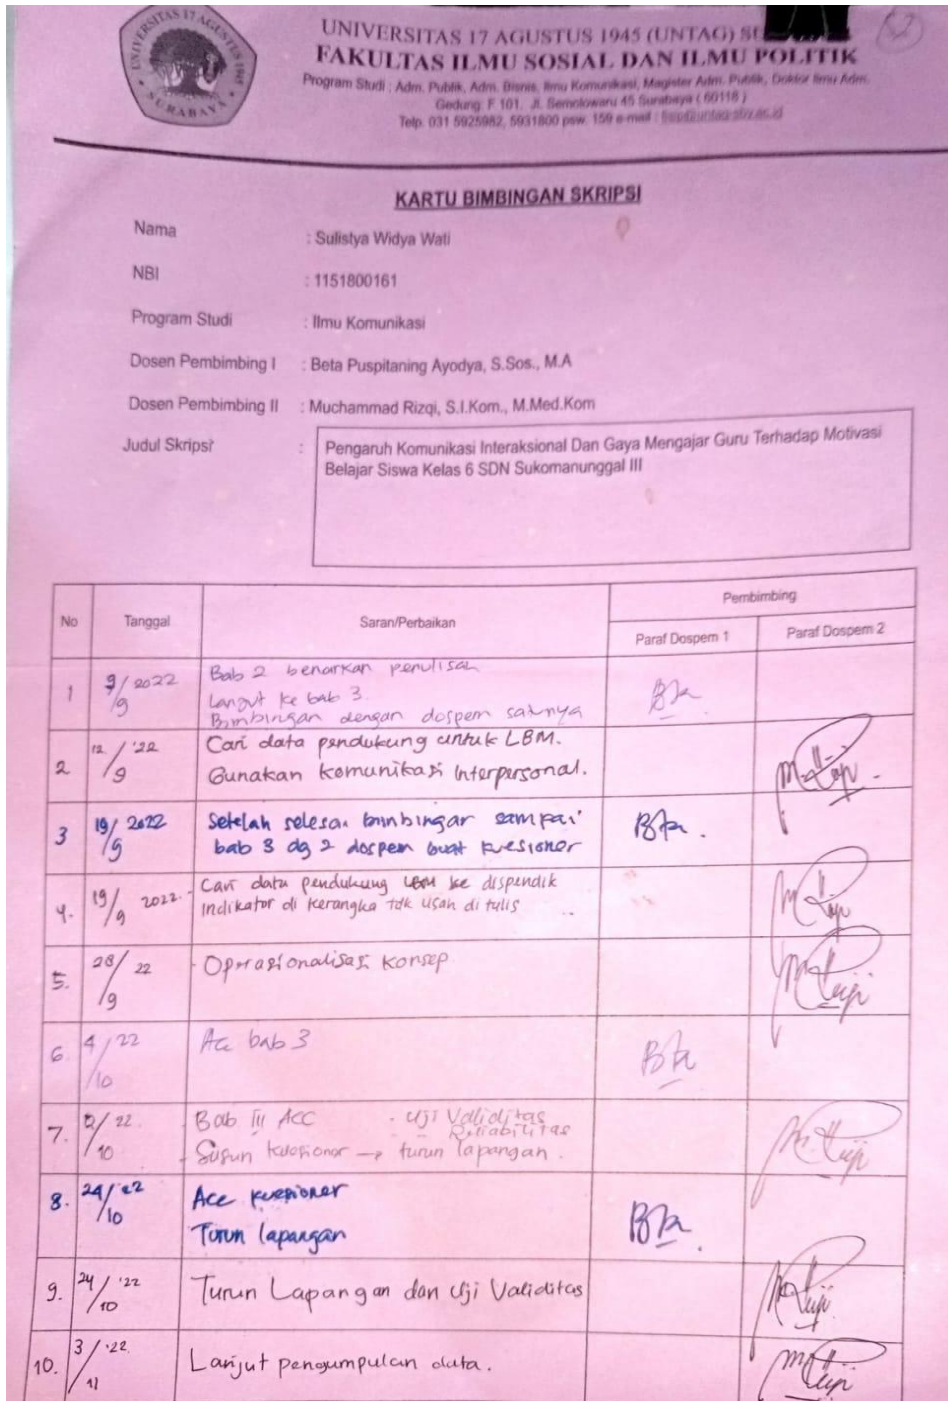 UNIVERSITAS 17 AGUSTUS 1945
SURABAYA
UNIVERSITAS 17 AGUSTUS 1945 (UNTAG)
FAKULTAS ILMU SOSIAL DAN ILMU POLITIK
Program Studi : Adm. Publik, Adm. Bisnis, Ilmu Komunikasi, Magister Adm. Publik, Doktor Ilmu Adm.
Gedung F 101, Jl. Semolowaru 45 Surabaya ( 60118 )
Telp. 031 5925982, 5931800 psw. 159 e-mail :
KARTU BIMBINGAN SKRIPSI
Nama : Sulistya Widya Wati
NBI : 1151800161
Program Studi : Ilmu Komunikasi
Dosen Pembimbing I : Beta Puspitaning Ayodya, S.Sos., M.A
Dosen Pembimbing II : Muchammad Rizqi, S.I.Kom., M.Med.Kom
Judul Skripsi : Pengaruh Komunikasi Interaksional Dan Gaya Mengajar Guru Terhadap Motivasi
Belajar Siswa Kelas 6 SDN Sukomanunggal III
No Tanggal Saran/Perbaikan Pembimbing
Paraf Dospem 1 Paraf Dospem 2
1 9/9 2022 Bab 2 benarkan penulisan
Lanjut ke bab 3.
Bimbingan dengan dospem satunya
2 12/9 '22 Cari data pendukung untuk LBM.
Gunakan komunikasi Interpersonal.
3 19/9 2022 Setelah selesai bimbingan sampai
bab 3 dg 2 dospem buat kuesioner
4. 19/9 2022 - Cari data pendukung LBM ke dispendik
Indikator di kerangka tdk usah di tulis
5. 28/9 22 - Operasionalisasi Konsep
6. 4/10 22 Acc bab 3
7. /10 22. Bab III ACC - Uji Validitas
- Reliabilitas
- Susun kuesioner → turun lapangan.
8. 24/10 '22 Acc kuesioner
Turun lapangan
9. 24/10 '22 Turun Lapangan dan Uji Validitas
10. 3/11 '22. Lanjut pengumpulan data.